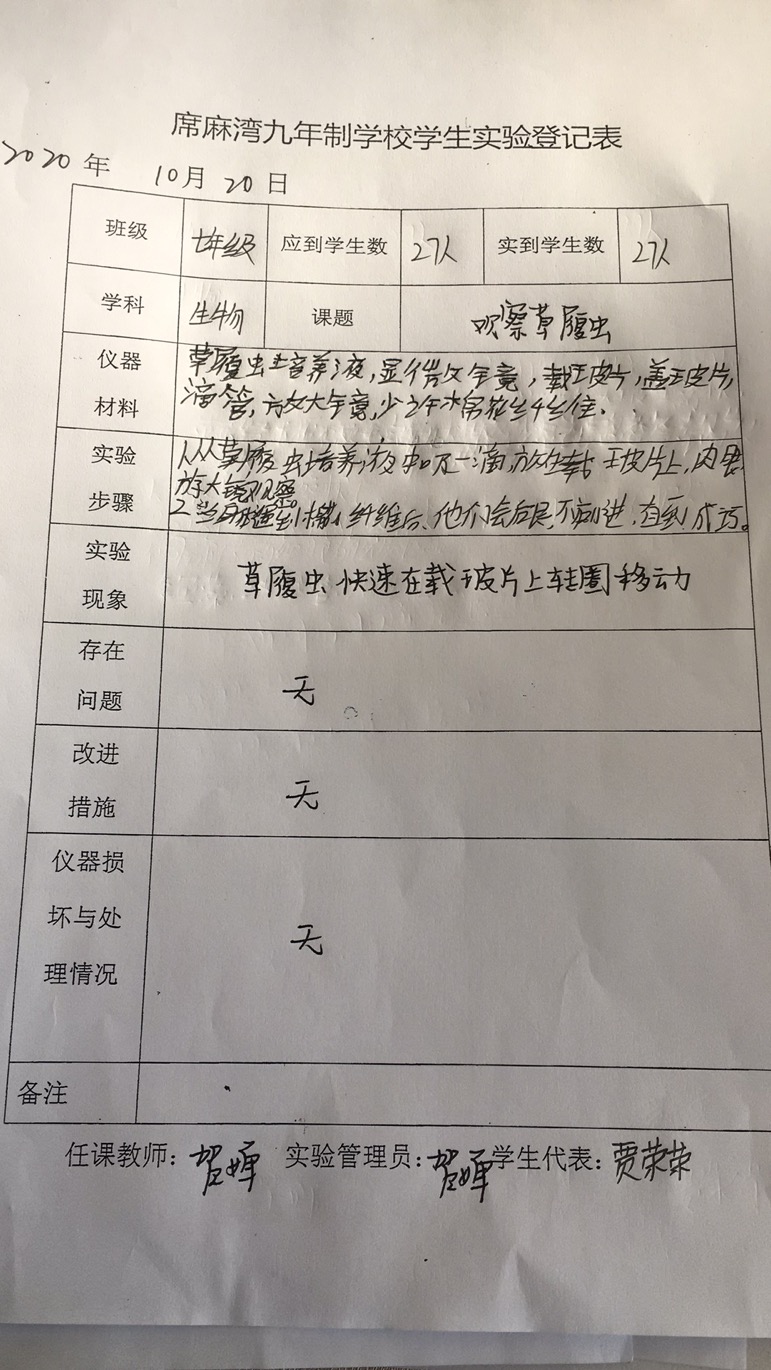 席麻湾九年制学校学生实验登记表
2020年 10月20日
班级 七年级 应到学生数 27人 实到学生数 27人
学科 生物 课题 观察草履虫
仪器材料 草履虫培养液,显微镜,载玻片,盖玻片,
滴管,放大镜,少许棉花丝纤维.
实验步骤 1.从草履虫培养液中吸一滴,放在载玻片上,用
放大镜观察。
2.当 碰到 纤维后、他们会后退,不 前进,直到 。
实验现象 草履虫快速在载玻片上转圈移动
存在问题 无
改进措施 无
仪器损坏与处理情况 无
备注
任课教师: 贺婵 实验管理员: 贺婵 学生代表: 贾荣荣